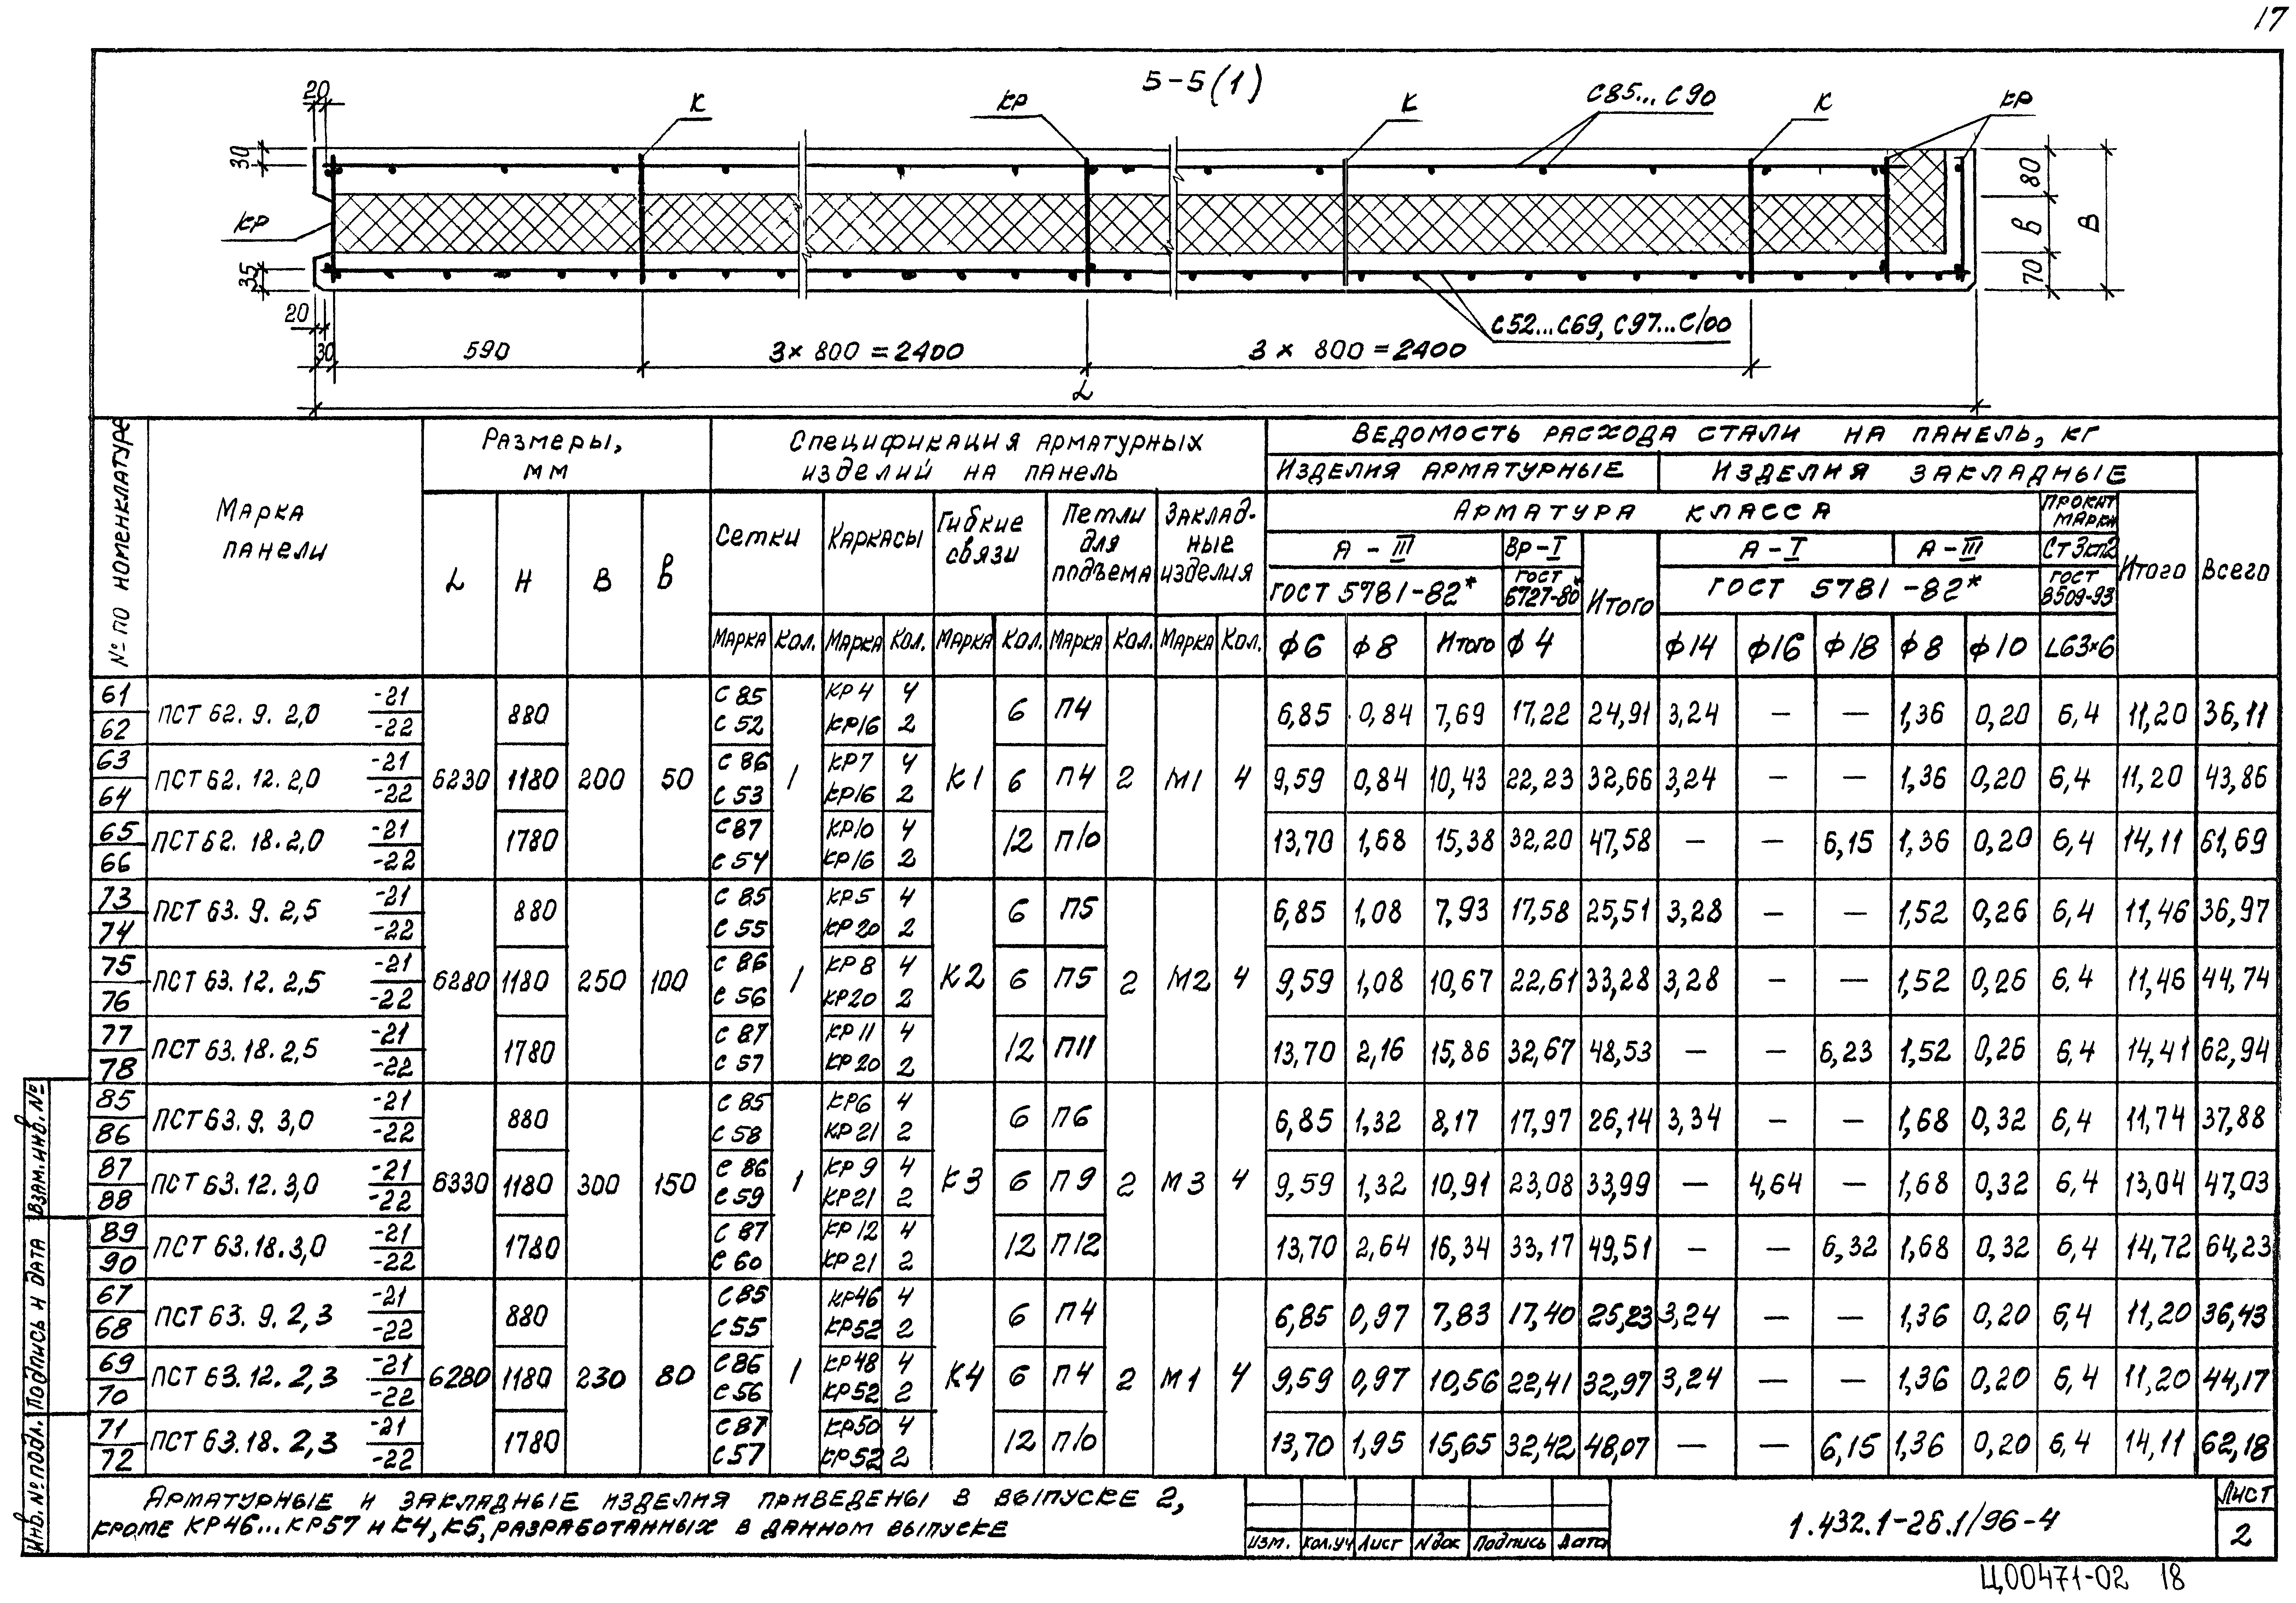 17
5-5(1)
20 К КР К С85...С90 К КР
30 80
КР в В
35 70
20 С52...С69, С97...С100
30 590 3×800=2400 3×800=2400
L
№ по номенклатуре
Марка панели
Размеры, мм
L H B в
Спецификация арматурных изделий на панель
Сетки Каркасы Гибкие связи Петли для подъема Закладные изделия
Марка Кол. Марка Кол. Марка Кол. Марка Кол. Марка Кол.
Ведомость расхода стали на панель, кг
Изделия арматурные Изделия закладные
Арматура класса Прокат марки
А-III Вр-I Итого А-I А-III Ст3кп2 Итого Всего
ГОСТ 5781-82* ГОСТ 6727-80* ГОСТ 5781-82* ГОСТ 8509-93
ф6 ф8 Итого ф4 ф14 ф16 ф18 ф8 ф10 L63×6
61 ПСТ 62.9.2,0 -21 880 С85 КР4 4 6 П4 6,85 0,84 7,69 17,22 24,91 3,24 — — 1,36 0,20 6,4 11,20 36,11
62 -22 С52 КР16 2
63 ПСТ 62.12.2,0 -21 6230 1180 200 50 С86 1 КР7 4 К1 6 П4 2 М1 4 9,59 0,84 10,43 22,23 32,66 3,24 — — 1,36 0,20 6,4 11,20 43,86
64 -22 С53 КР16 2
65 ПСТ 62.18.2,0 -21 1780 С87 КР10 4 12 П10 13,70 1,68 15,38 32,20 47,58 — — 6,15 1,36 0,20 6,4 14,11 61,69
66 -22 С54 КР16 2
73 ПСТ 63.9.2,5 -21 880 С85 КР5 4 6 П5 6,85 1,08 7,93 17,58 25,51 3,28 — — 1,52 0,26 6,4 11,46 36,97
74 -22 С55 КР20 2
75 ПСТ 63.12.2,5 -21 6280 1180 250 100 С86 1 КР8 4 К2 6 П5 2 М2 4 9,59 1,08 10,67 22,61 33,28 3,28 — — 1,52 0,26 6,4 11,46 44,74
76 -22 С56 КР20 2
77 ПСТ 63.18.2,5 -21 1780 С87 КР11 4 12 П11 13,70 2,16 15,86 32,67 48,53 — — 6,23 1,52 0,26 6,4 14,41 62,94
78 -22 С57 КР20 2
85 ПСТ 63.9.3,0 -21 880 С85 КР6 4 6 П6 6,85 1,32 8,17 17,97 26,14 3,34 — — 1,68 0,32 6,4 11,74 37,88
86 -22 С58 КР21 2
87 ПСТ 63.12.3,0 -21 6330 1180 300 150 С86 1 КР9 4 К3 6 П9 2 М3 4 9,59 1,32 10,91 23,08 33,99 — 4,64 — 1,68 0,32 6,4 13,04 47,03
88 -22 С59 КР21 2
89 ПСТ 63.18.3,0 -21 1780 С87 КР12 4 12 П12 13,70 2,64 16,34 33,17 49,51 — — 6,32 1,68 0,32 6,4 14,72 64,23
90 -22 С60 КР21 2
67 ПСТ 63.9.2,3 -21 880 С85 КР46 4 6 П4 6,85 0,97 7,83 17,40 25,23 3,24 — — 1,36 0,20 6,4 11,20 36,43
68 -22 С55 КР52 2
69 ПСТ 63.12.2,3 -21 6280 1180 230 80 С86 1 КР48 4 К4 6 П4 2 М1 4 9,59 0,97 10,56 22,41 32,97 3,24 — — 1,36 0,20 6,4 11,20 44,17
70 -22 С56 КР52 2
71 ПСТ 63.18.2,3 -21 1780 С87 КР50 4 12 П10 13,70 1,95 15,65 32,42 48,07 — — 6,15 1,36 0,20 6,4 14,11 62,18
72 -22 С57 КР52 2
Арматурные и закладные изделия приведены в выпуске 2,
кроме КР46...КР57 и К4, К5, разработанных в данном выпуске
Изм. Кол.уч Лист Nдок Подпись Дата
1.432.1-26.1/96-4
Лист
2
Взам.инв.№
Подпись и дата
Инв.№ подл.
Ц00471-02 18